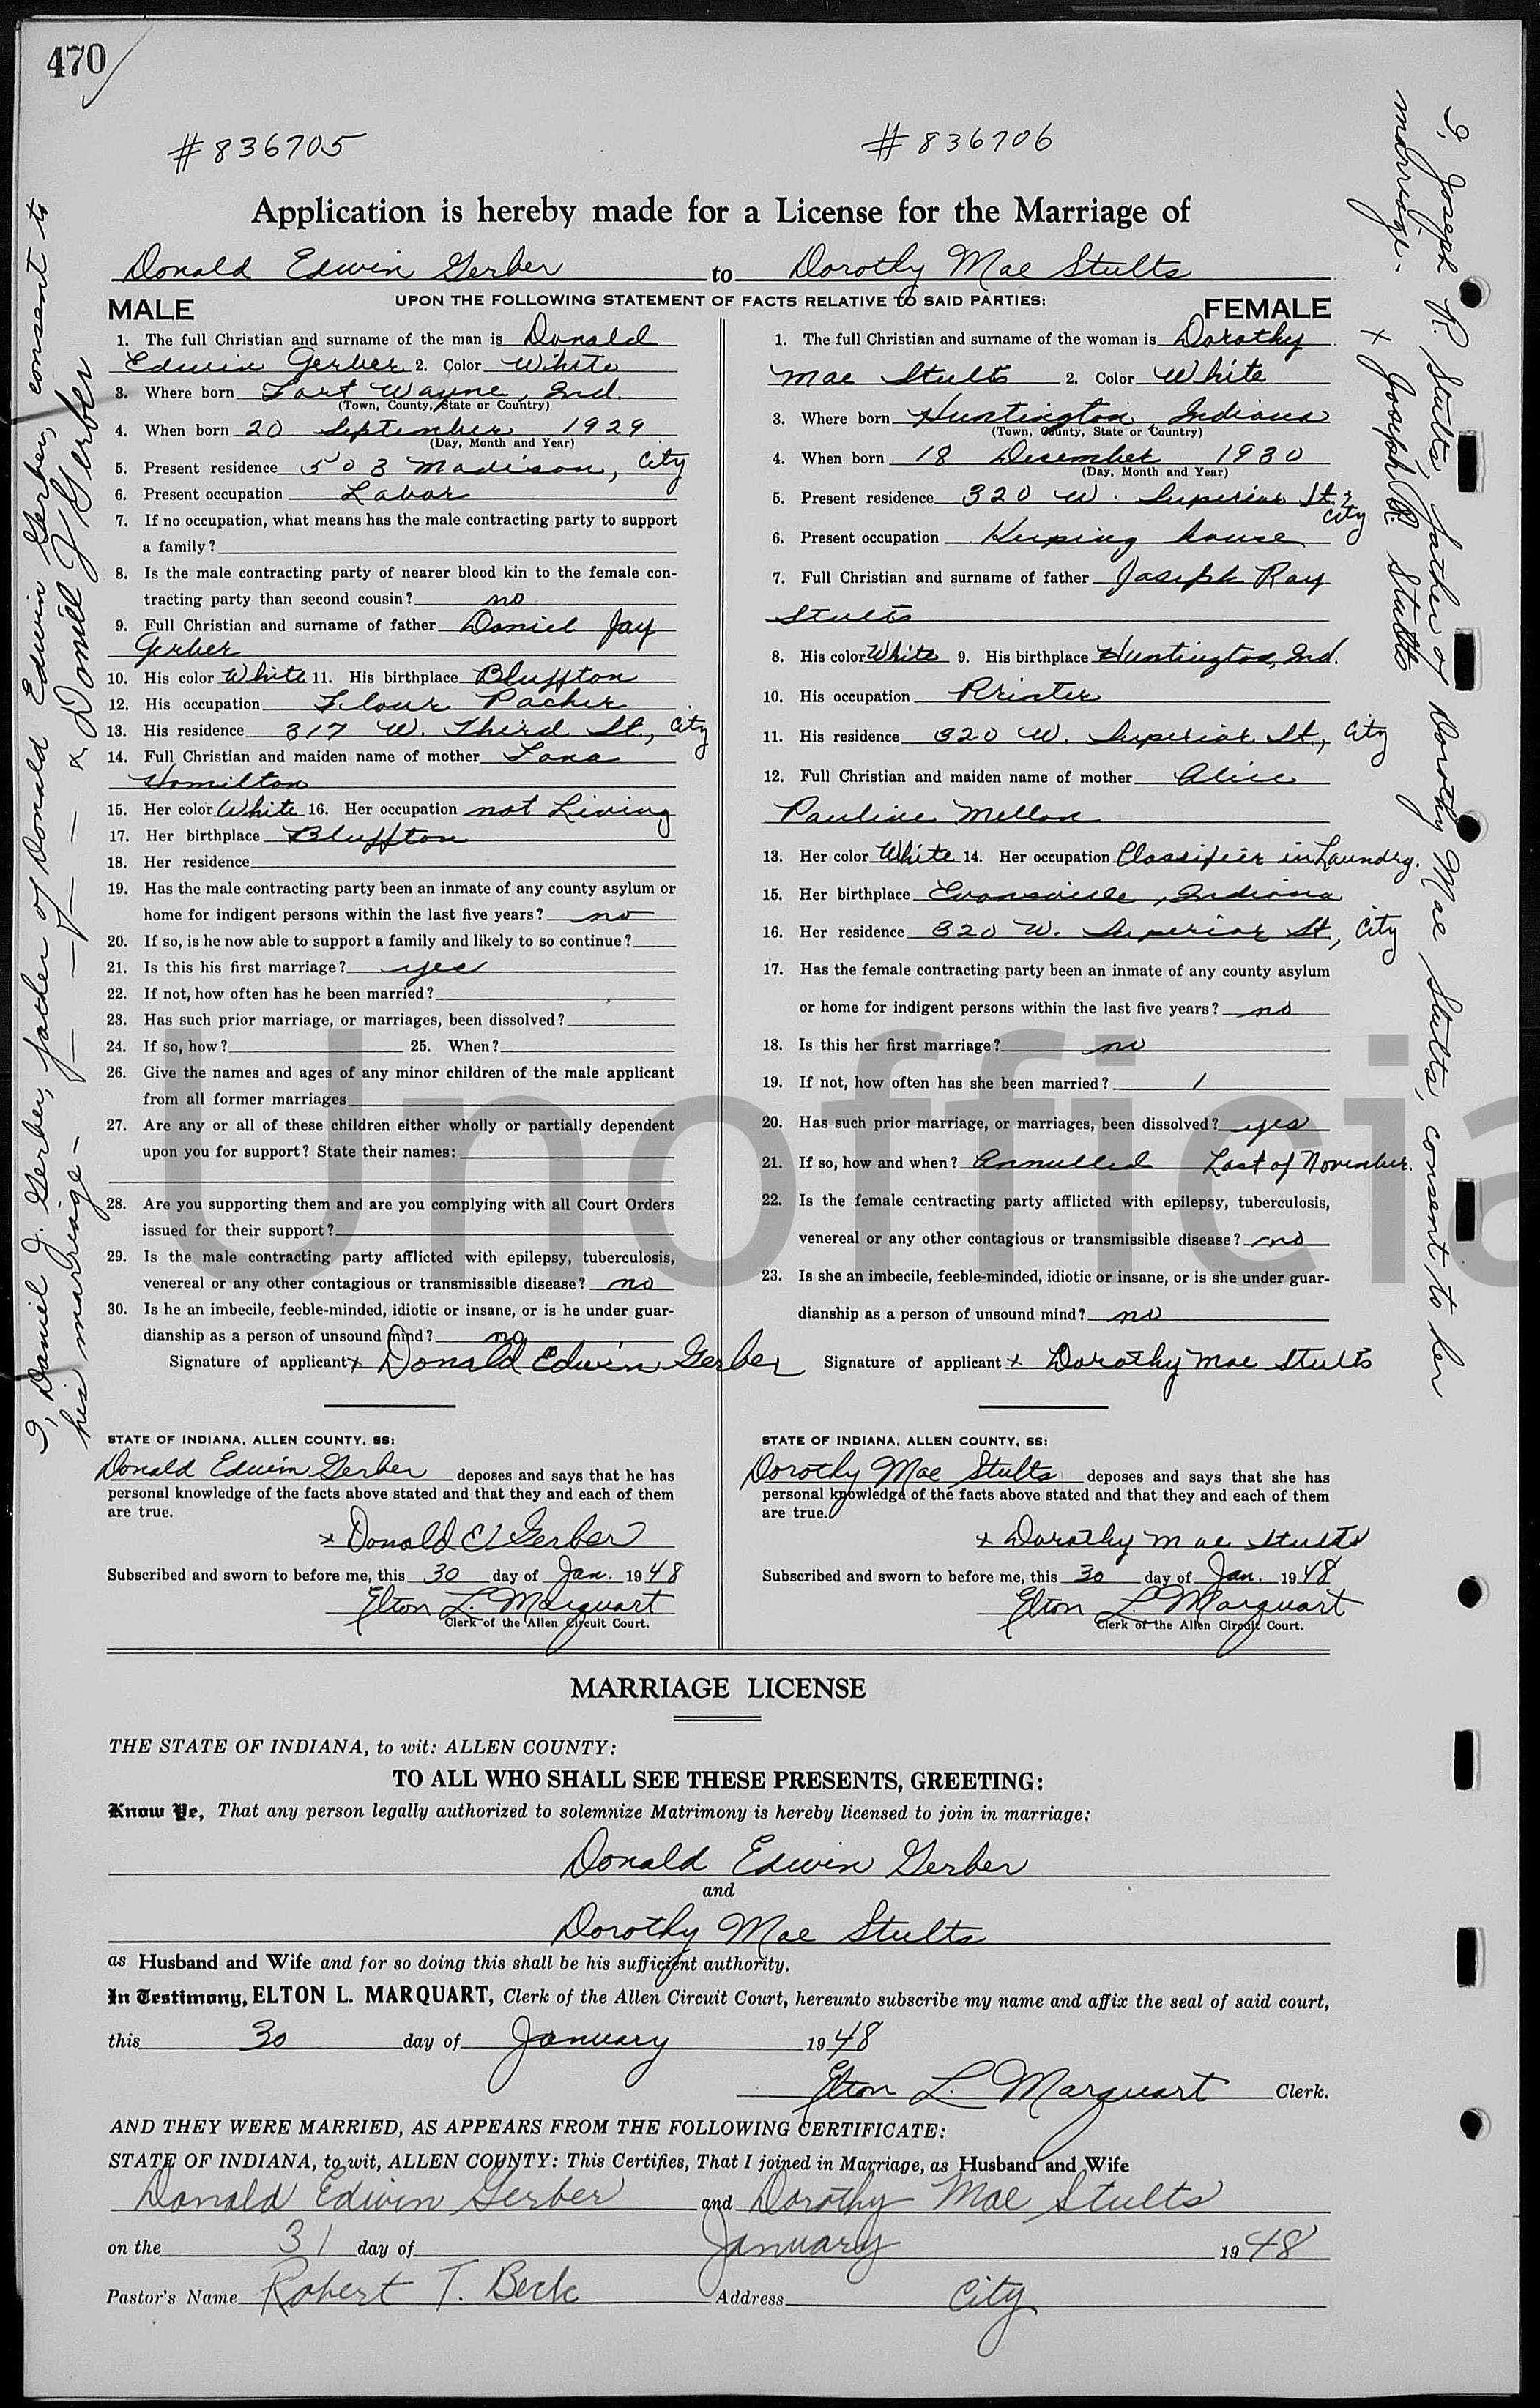 470
#836705
#836706
Application is hereby made for a License for the Marriage of
Donald Edwin Gerber to Dorothy Mae Stults
UPON THE FOLLOWING STATEMENT OF FACTS RELATIVE TO SAID PARTIES:
MALE
1. The full Christian and surname of the man is Donald
Edwin Gerber 2. Color White
3. Where born Fort Wayne, Ind.
(Town, County, State or Country)
4. When born 20 September 1929
(Day, Month and Year)
5. Present residence 503 Madison, City
6. Present occupation Labor
7. If no occupation, what means has the male contracting party to support
a family?
8. Is the male contracting party of nearer blood kin to the female con-
tracting party than second cousin? no
9. Full Christian and surname of father Daniel Jay
Gerber
10. His color White 11. His birthplace Bluffton
12. His occupation Flour Packer
13. His residence 317 W. Third St., City
14. Full Christian and maiden name of mother
Hamilton
15. Her color White 16. Her occupation not Living
17. Her birthplace Bluffton
18. Her residence
19. Has the male contracting party been an inmate of any county asylum or
home for indigent persons within the last five years? no
20. If so, is he now able to support a family and likely to so continue?
21. Is this his first marriage? yes
22. If not, how often has he been married?
23. Has such prior marriage, or marriages, been dissolved?
24. If so, how? 25. When?
26. Give the names and ages of any minor children of the male applicant
from all former marriages
27. Are any or all of these children either wholly or partially dependent
upon you for support? State their names:
28. Are you supporting them and are you complying with all Court Orders
issued for their support?
29. Is the male contracting party afflicted with epilepsy, tuberculosis,
venereal or any other contagious or transmissible disease? no
30. Is he an imbecile, feeble-minded, idiotic or insane, or is he under guar-
dianship as a person of unsound mind? no
Signature of applicant x Donald Edwin Gerber
STATE OF INDIANA, ALLEN COUNTY, SS:
Donald Edwin Gerber deposes and says that he has
personal knowledge of the facts above stated and that they and each of them
are true.
x Donald E Gerber
Subscribed and sworn to before me, this 30 day of Jan. 1948
Elton L. Marquart
Clerk of the Allen Circuit Court.
FEMALE
1. The full Christian and surname of the woman is Dorothy
Mae Stults 2. Color White
3. Where born Huntington, Indiana
(Town, County, State or Country)
4. When born 18 December 1930
(Day, Month and Year)
5. Present residence 320 W. Superior St.,
City
6. Present occupation Keeping house
7. Full Christian and surname of father Joseph Ray
Stults
8. His color White 9. His birthplace Huntington, Ind.
10. His occupation Printer
11. His residence 320 W. Superior St., City
12. Full Christian and maiden name of mother Alice
Pauline Mellon
13. Her color White 14. Her occupation Classifier in Laundry.
15. Her birthplace Evansville, Indiana
16. Her residence 320 W. Superior St., City
17. Has the female contracting party been an inmate of any county asylum
or home for indigent persons within the last five years? no
18. Is this her first marriage? no
19. If not, how often has she been married? 1
20. Has such prior marriage, or marriages, been dissolved? yes
21. If so, how and when? Annulled Last of November.
22. Is the female contracting party afflicted with epilepsy, tuberculosis,
venereal or any other contagious or transmissible disease? no
23. Is she an imbecile, feeble-minded, idiotic or insane, or is she under guar-
dianship as a person of unsound mind? no
Signature of applicant x Dorothy Mae Stults
STATE OF INDIANA, ALLEN COUNTY, SS:
Dorothy Mae Stults deposes and says that she has
personal knowledge of the facts above stated and that they and each of them
are true.
x Dorothy Mae Stults
Subscribed and sworn to before me, this 30 day of Jan. 1948
Elton L. Marquart
Clerk of the Allen Circuit Court.
I, Daniel J. Gerber, father of Donald Edwin Gerber, consent to
his marriage - x Daniel J Gerber
I, Joseph R. Stults, father of Dorothy Mae Stults, consent to her
marriage -
x Joseph R. Stults
Unofficia
MARRIAGE LICENSE
THE STATE OF INDIANA, to wit: ALLEN COUNTY:
TO ALL WHO SHALL SEE THESE PRESENTS, GREETING:
Know Ye, That any person legally authorized to solemnize Matrimony is hereby licensed to join in marriage:
Donald Edwin Gerber
and
Dorothy Mae Stults
as Husband and Wife and for so doing this shall be his sufficient authority.
In Testimony, ELTON L. MARQUART, Clerk of the Allen Circuit Court, hereunto subscribe my name and affix the seal of said court,
this 30 day of January 1948
Elton L. Marquart Clerk.
AND THEY WERE MARRIED, AS APPEARS FROM THE FOLLOWING CERTIFICATE:
STATE OF INDIANA, to wit, ALLEN COUNTY: This Certifies, That I joined in Marriage, as Husband and Wife
Donald Edwin Gerber and Dorothy Mae Stults
on the 31 day of January 1948
Pastor's Name Robert T. Beck Address City